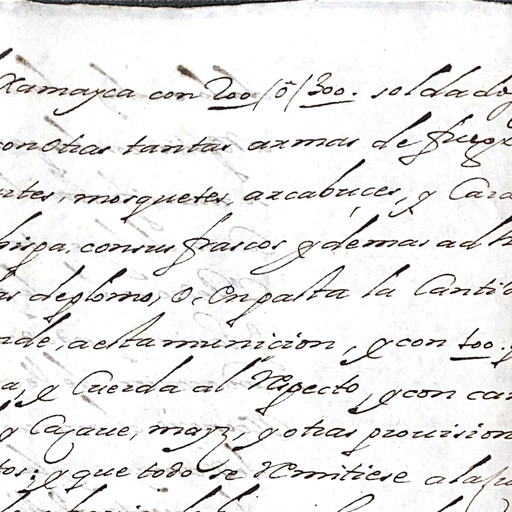 Xamayca con 200/ó/300. soldados
con otras tantas armas de fuego
mosquetes, arcabuces, y Cara
chispa, con sus frascos, y demas adh
as de plomo, o, en pasta la Canti
nde, a esta municion, y con 100.
a, y Cuerda al respecto, y con car
y Cazaue, mayz, y otras prouision
tos; y que todo se remitiese a la